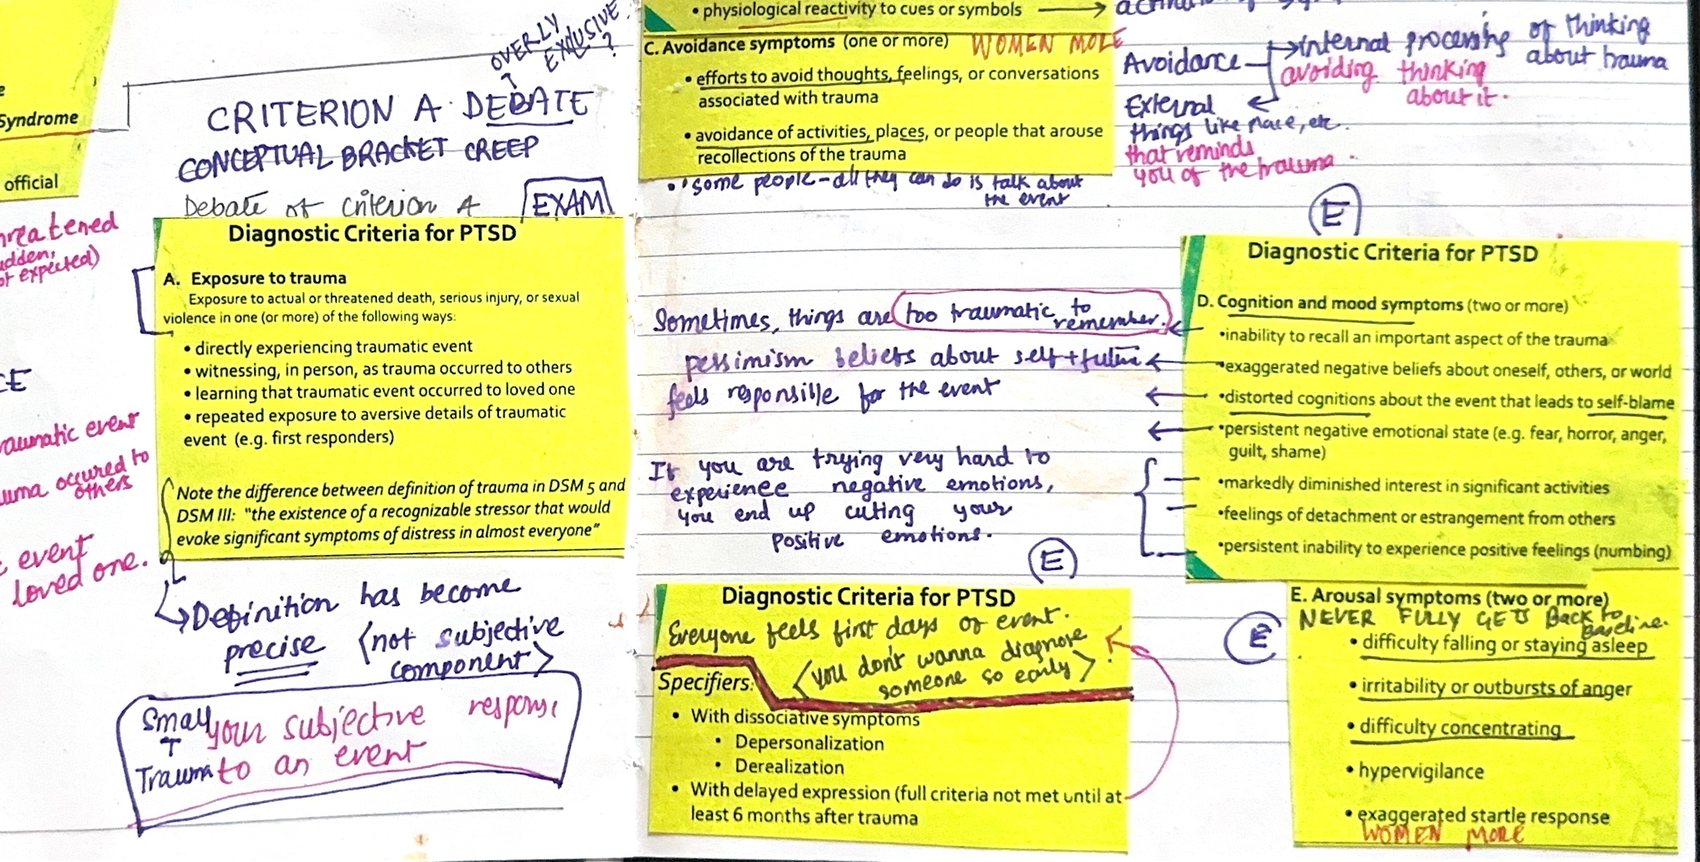 Syndrome
official
hreatened
udden,
ot expected)
CE
raumatic event
uma occured to
others
event
loved one.
OVERLY
EXCLUSIVE?
CRITERION A DEBATE
CONCEPTUAL BRACKET CREEP
Debate of criterion A
EXAM
Diagnostic Criteria for PTSD
A. Exposure to trauma
Exposure to actual or threatened death, serious injury, or sexual
violence in one (or more) of the following ways:
• directly experiencing traumatic event
• witnessing, in person, as trauma occurred to others
• learning that traumatic event occurred to loved one
• repeated exposure to aversive details of traumatic
event (e.g. first responders)
Note the difference between definition of trauma in DSM 5 and
DSM III: "the existence of a recognizable stressor that would
evoke significant symptoms of distress in almost everyone"
Definition has become
precise <not subjective
component>
Small T
Trauma
your subjective response
to an event
• physiological reactivity to cues or symbols
C. Avoidance symptoms (one or more) WOMEN MORE
• efforts to avoid thoughts, feelings, or conversations
associated with trauma
• avoidance of activities, places, or people that arouse
recollections of the trauma
• some people - all they can do is talk about
the event
Avoidance → internal processing of thinking
about trauma
avoiding thinking
about it.
External
things like place, etc.
that reminds
you of the trauma.
E
Sometimes, things are too traumatic to
remember.
pessimism beliefs about self + future
feels responsible for the event
If you are trying very hard to
experience negative emotions,
you end up cutting your
positive emotions.
Diagnostic Criteria for PTSD
D. Cognition and mood symptoms (two or more)
•inability to recall an important aspect of the trauma
•exaggerated negative beliefs about oneself, others, or world
•distorted cognitions about the event that leads to self-blame
•persistent negative emotional state (e.g. fear, horror, anger,
guilt, shame)
•markedly diminished interest in significant activities
•feelings of detachment or estrangement from others
•persistent inability to experience positive feelings (numbing)
E
Diagnostic Criteria for PTSD
Everyone feels first days of event.
<you don't wanna diagnose
someone so early>
Specifiers:
• With dissociative symptoms
• Depersonalization
• Derealization
• With delayed expression (full criteria not met until at
least 6 months after trauma
E
E. Arousal symptoms (two or more)
NEVER FULLY GETS BACK TO
Baseline.
• difficulty falling or staying asleep
• irritability or outbursts of anger
• difficulty concentrating
• hypervigilance
• exaggerated startle response
WOMEN MORE